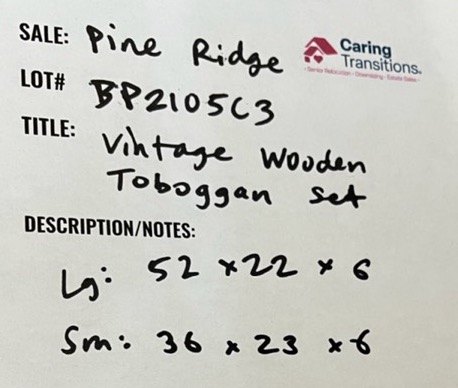 SALE: Pine Ridge
Caring
Transitions.
Senior Relocation • Downsizing • Estate Sales
LOT# BP2105C3
TITLE: Vintage Wooden
Toboggan set
DESCRIPTION/NOTES:
Lg: 52 x 22 x 6
Sm: 36 x 23 x 6